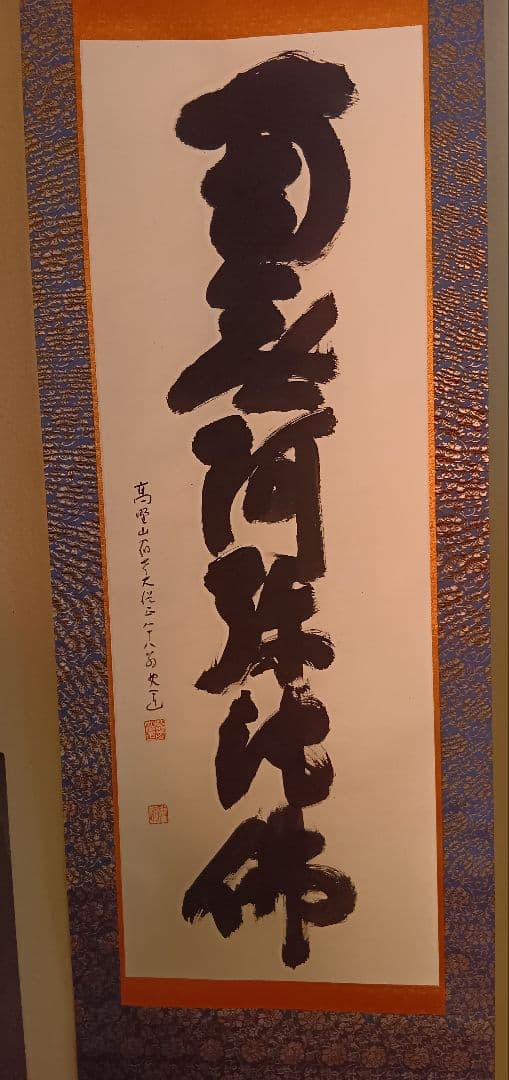 南無阿弥陀佛
高野山前官大僧正八十八翁